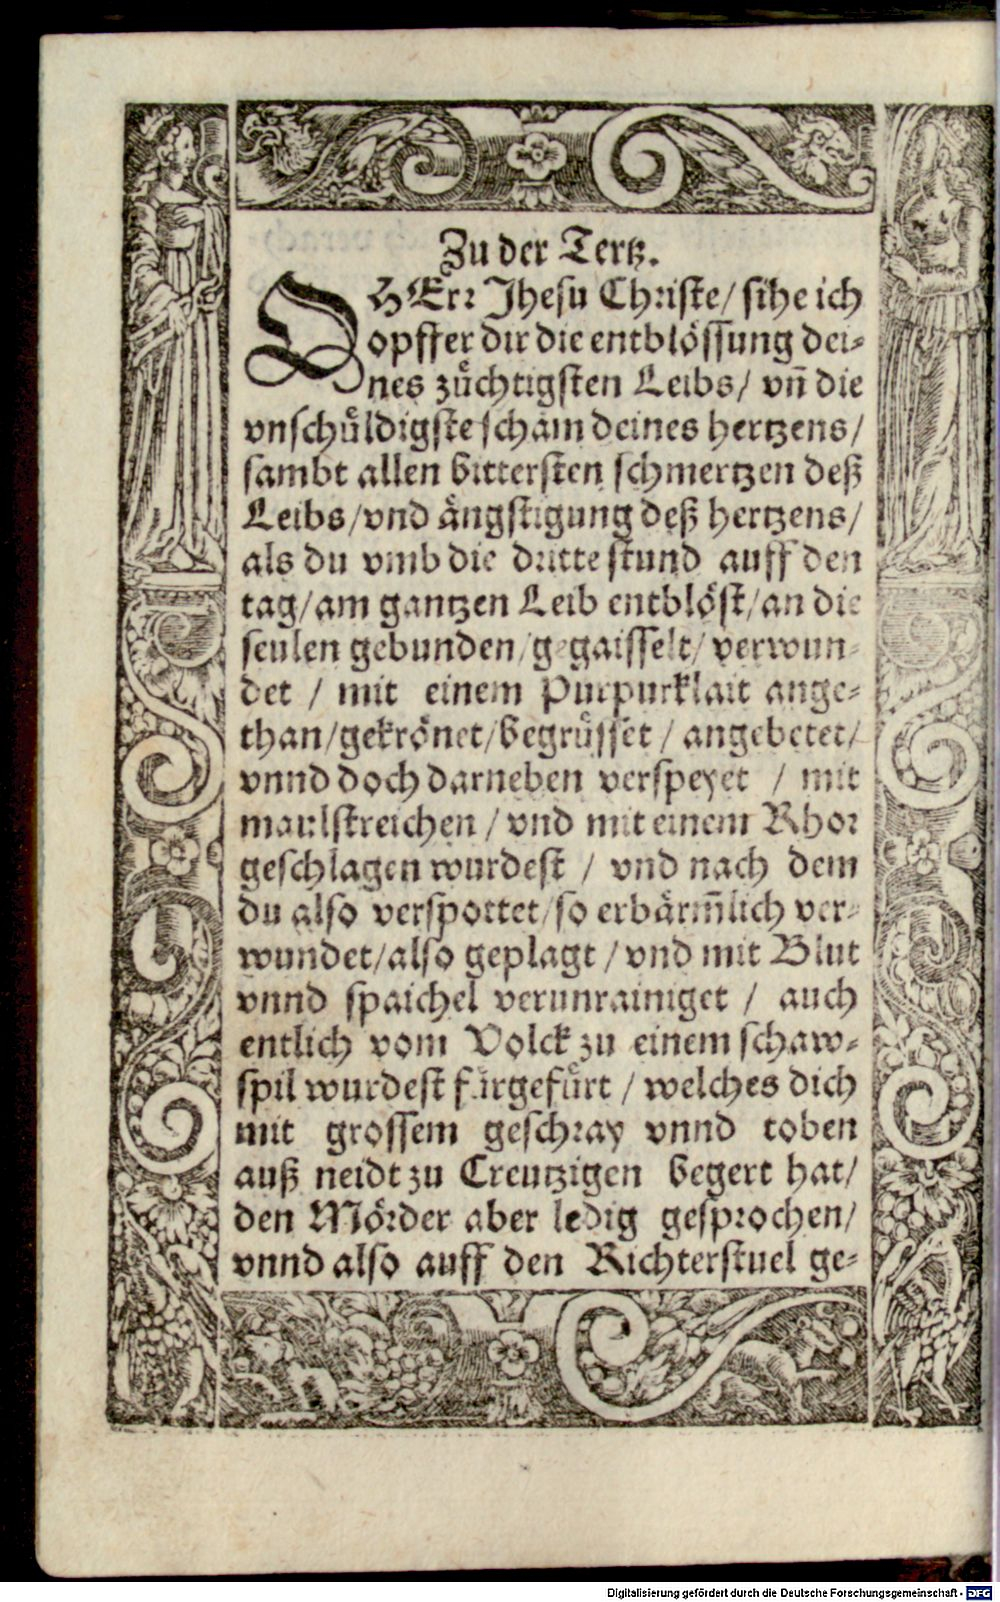 Zu der Tertz.
O HErr Jhesu Christe/ sihe ich
opffer dir die entblössung dei-
nes zůchtigsten Leibs/ vñ die
vnschůldigste scham deines hertzens/
sambt allen bittersten schmertzen deß
Leibs/vnd ängstigung deß hertzens/
als du vmb die dritte stund auff den
tag/am gantzen Leib entblöst/an die
seulen gebunden/gegaisselt/ verwun-
det / mit einem Purpurklait ange-
than/gekrönet/begrüsset / angebetet/
vnnd doch darneben verspeyet / mit
maulstreichen / vnd mit einem Rhor
geschlagen wurdest / vnd nach dem
du also verspottet/so erbärm̃lich ver-
wundet/also geplagt / vnd mit Blut
vnnd spaichel verunrainiget / auch
entlich vom Volck zu einem schaw-
spil wurdest fürgefürt / welches dich
mit grossem geschray vnnd toben
auß neidt zu Creutzigen begert hat/
den Mörder aber ledig gesprochen/
vnnd also auff den Richterstuel ge-
Digitalisierung gefördert durch die Deutsche Forschungsgemeinschaft - DFG